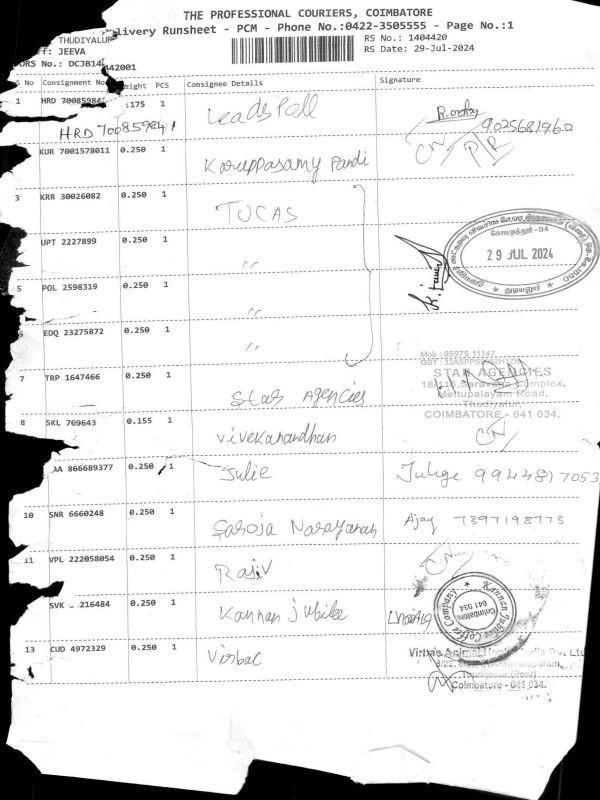 THE PROFESSIONAL COURIERS, COIMBATORE
Delivery Runsheet - PCM - Phone No.:0422-3505555 - Page No.:1
THUDIYALUR
JEEVA
RS No.: 1404420
RS Date: 29-Jul-2024
DRS No.: DCJB14
442001
S No Consignment No Weight PCS Consignee Details Signature
1 HRD 70085984 .175 1 Leads Poll
HRD 70085984 1
9025681960
KUR 7001578011 0.250 1 Karuppasamy Pandi
3 KRR 30026082 0.250 1 TUCAS
UPT 2227899 0.250 1 "
5 POL 2598319 0.250 1 "
EDQ 23275872 0.250 1 "
கோயமுத்தூர் -34
29 JUL 2024
துடியலூர்
7 TRP 1647466 0.250 1 Star Agencies
Mob : 95975 11147
STAR AGENCIES
Saravana Complex,
Mettupalayam Road,
Thudiyalur,
COIMBATORE - 641 034.
8 SKL 769643 0.155 1 Vivekanandhan
AA 866689377 0.250 1 Julie
10 SNR 6660248 0.250 1 Saroja Narayanan Ajay 7397198773
11 VPL 222058054 0.250 1 Rajiv
SVK 216484 0.250 1 Kannan Jubilee
Kannan Jubilee Coffee Company
Coimbatore
641 034
13 CUD 4972329 0.250 1 Virbac
Virbac Animal Health India Pvt Ltd
Coimbatore - 641 034.